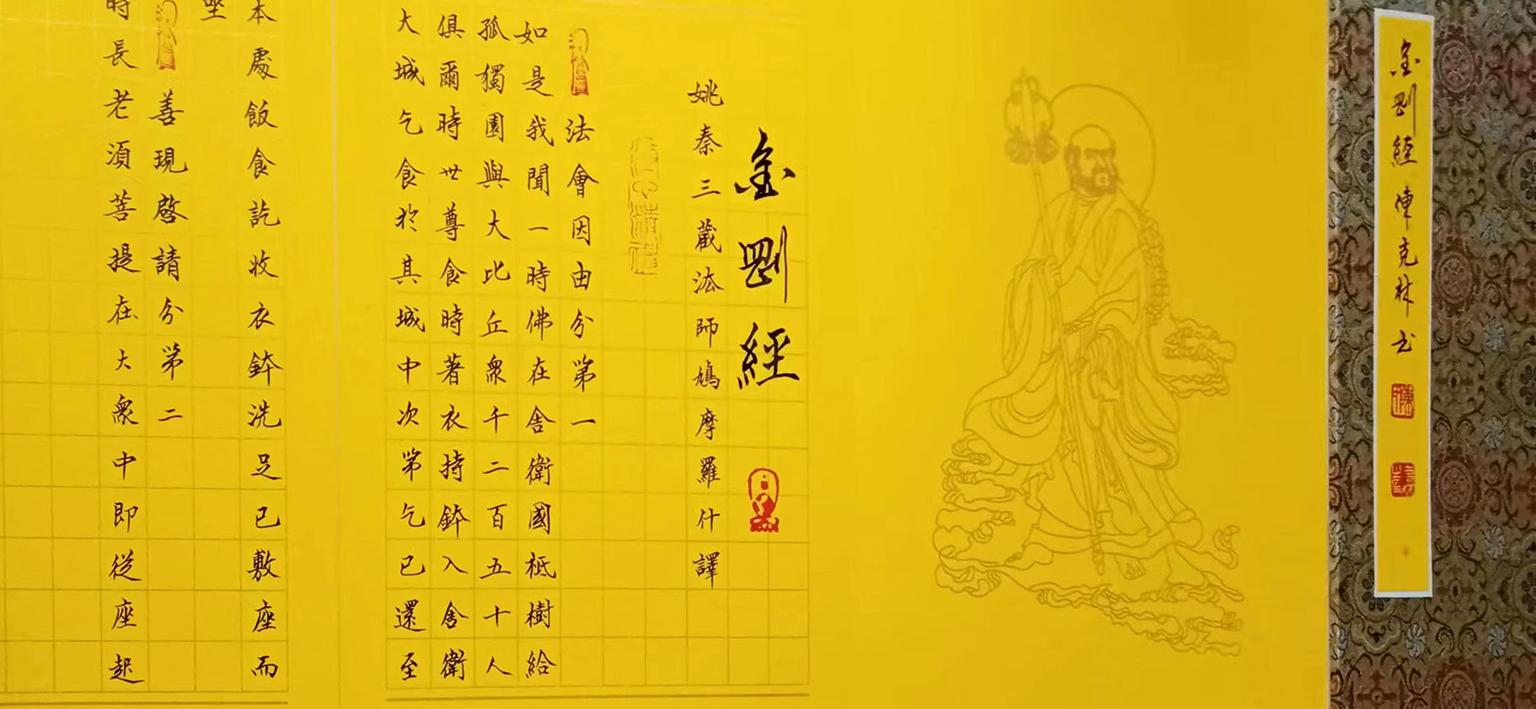 金剛經 陳克林书
金剛經
姚秦三藏法師鳩摩羅什譯
法會因由分第一
如是我聞一時佛在舍衛國祗樹給
孤獨園與大比丘眾千二百五十人
俱爾時世尊食時著衣持鉢入舍衛
大城乞食於其城中次第乞已還至
本處飯食訖收衣鉢洗足已敷座而
坐
善現啓請分第二
時長老須菩提在大眾中即從座起